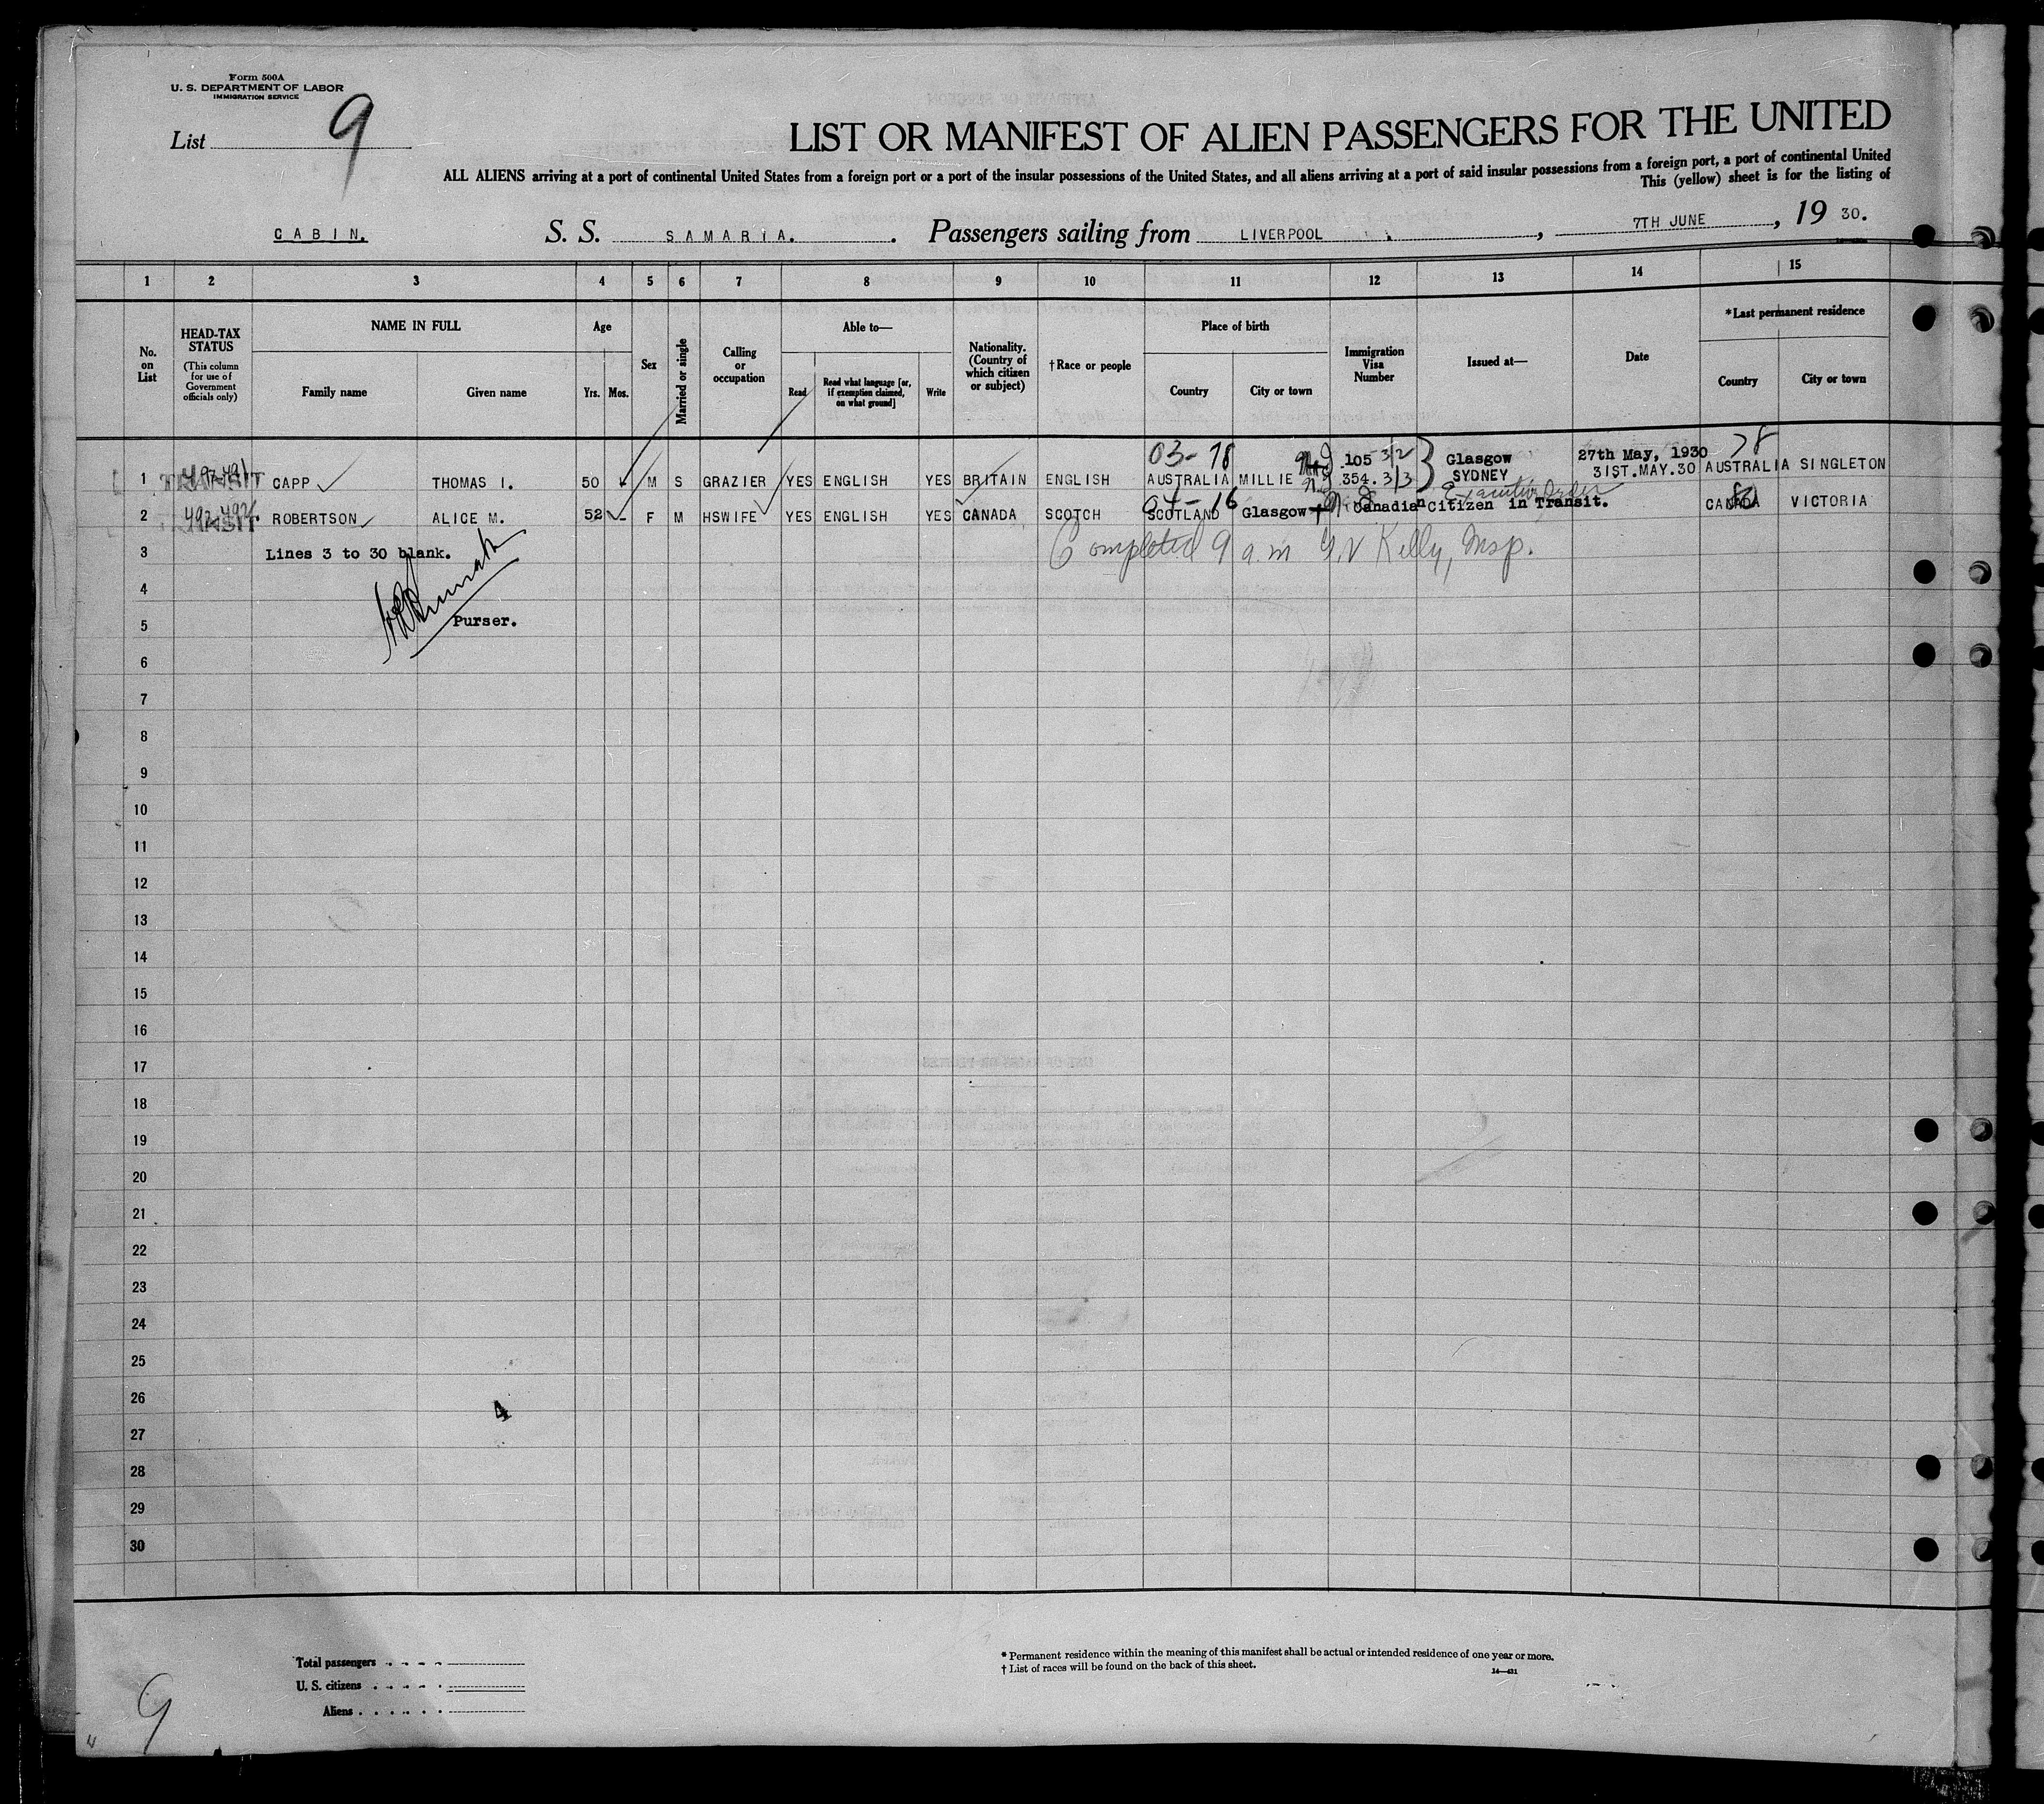 Form 500A
U. S. DEPARTMENT OF LABOR
IMMIGRATION SERVICE
List 9
LIST OR MANIFEST OF ALIEN PASSENGERS FOR THE UNITED
ALL ALIENS arriving at a port of continental United States from a foreign port or a port of the insular possessions of the United States, and all aliens arriving at a port of said insular possessions from a foreign port, a port of continental United
This (yellow) sheet is for the listing of
CABIN. S. S. SAMARIA. Passengers sailing from LIVERPOOL , 7TH JUNE , 19 30.
1 2 3 4 5 6 7 8 9 10 11 12 13 14 15
No. on List
HEAD-TAX STATUS
(This column for use of Government officials only)
NAME IN FULL
Family name Given name
Age
Yrs. Mos.
Sex
Married or single
Calling or occupation
Able to—
Read Read what language [or, if exemption claimed, on what ground] Write
Nationality. (Country of which citizen or subject)
†Race or people
Place of birth
Country City or town
Immigration Visa Number
Issued at—
Date
*Last permanent residence
Country City or town
03-78 105 3/2 Glasgow 27th May, 1930 78
1 TRANSIT CAPP THOMAS I. 50 M S GRAZIER YES ENGLISH YES BRITAIN ENGLISH AUSTRALIA MILLIE 354. 3/3 SYDNEY 31ST.MAY.30 AUSTRALIA SINGLETON
04-16 Executive Order
2 TRANSIT ROBERTSON ALICE M. 52 F M HSWIFE YES ENGLISH YES CANADA SCOTCH SCOTLAND Glasgow Canadian Citizen in Transit. CANADA VICTORIA
3 Lines 3 to 30 blank. Completed 9 a.m Kelly, Insp.
4
5 Purser.
6
7
8
9
10
11
12
13
14
15
16
17
18
19
20
21
22
23
24
25
26
4
27
28
29
30
Total passengers
U. S. citizens
Aliens
* Permanent residence within the meaning of this manifest shall be actual or intended residence of one year or more.
† List of races will be found on the back of this sheet.
14—431
9